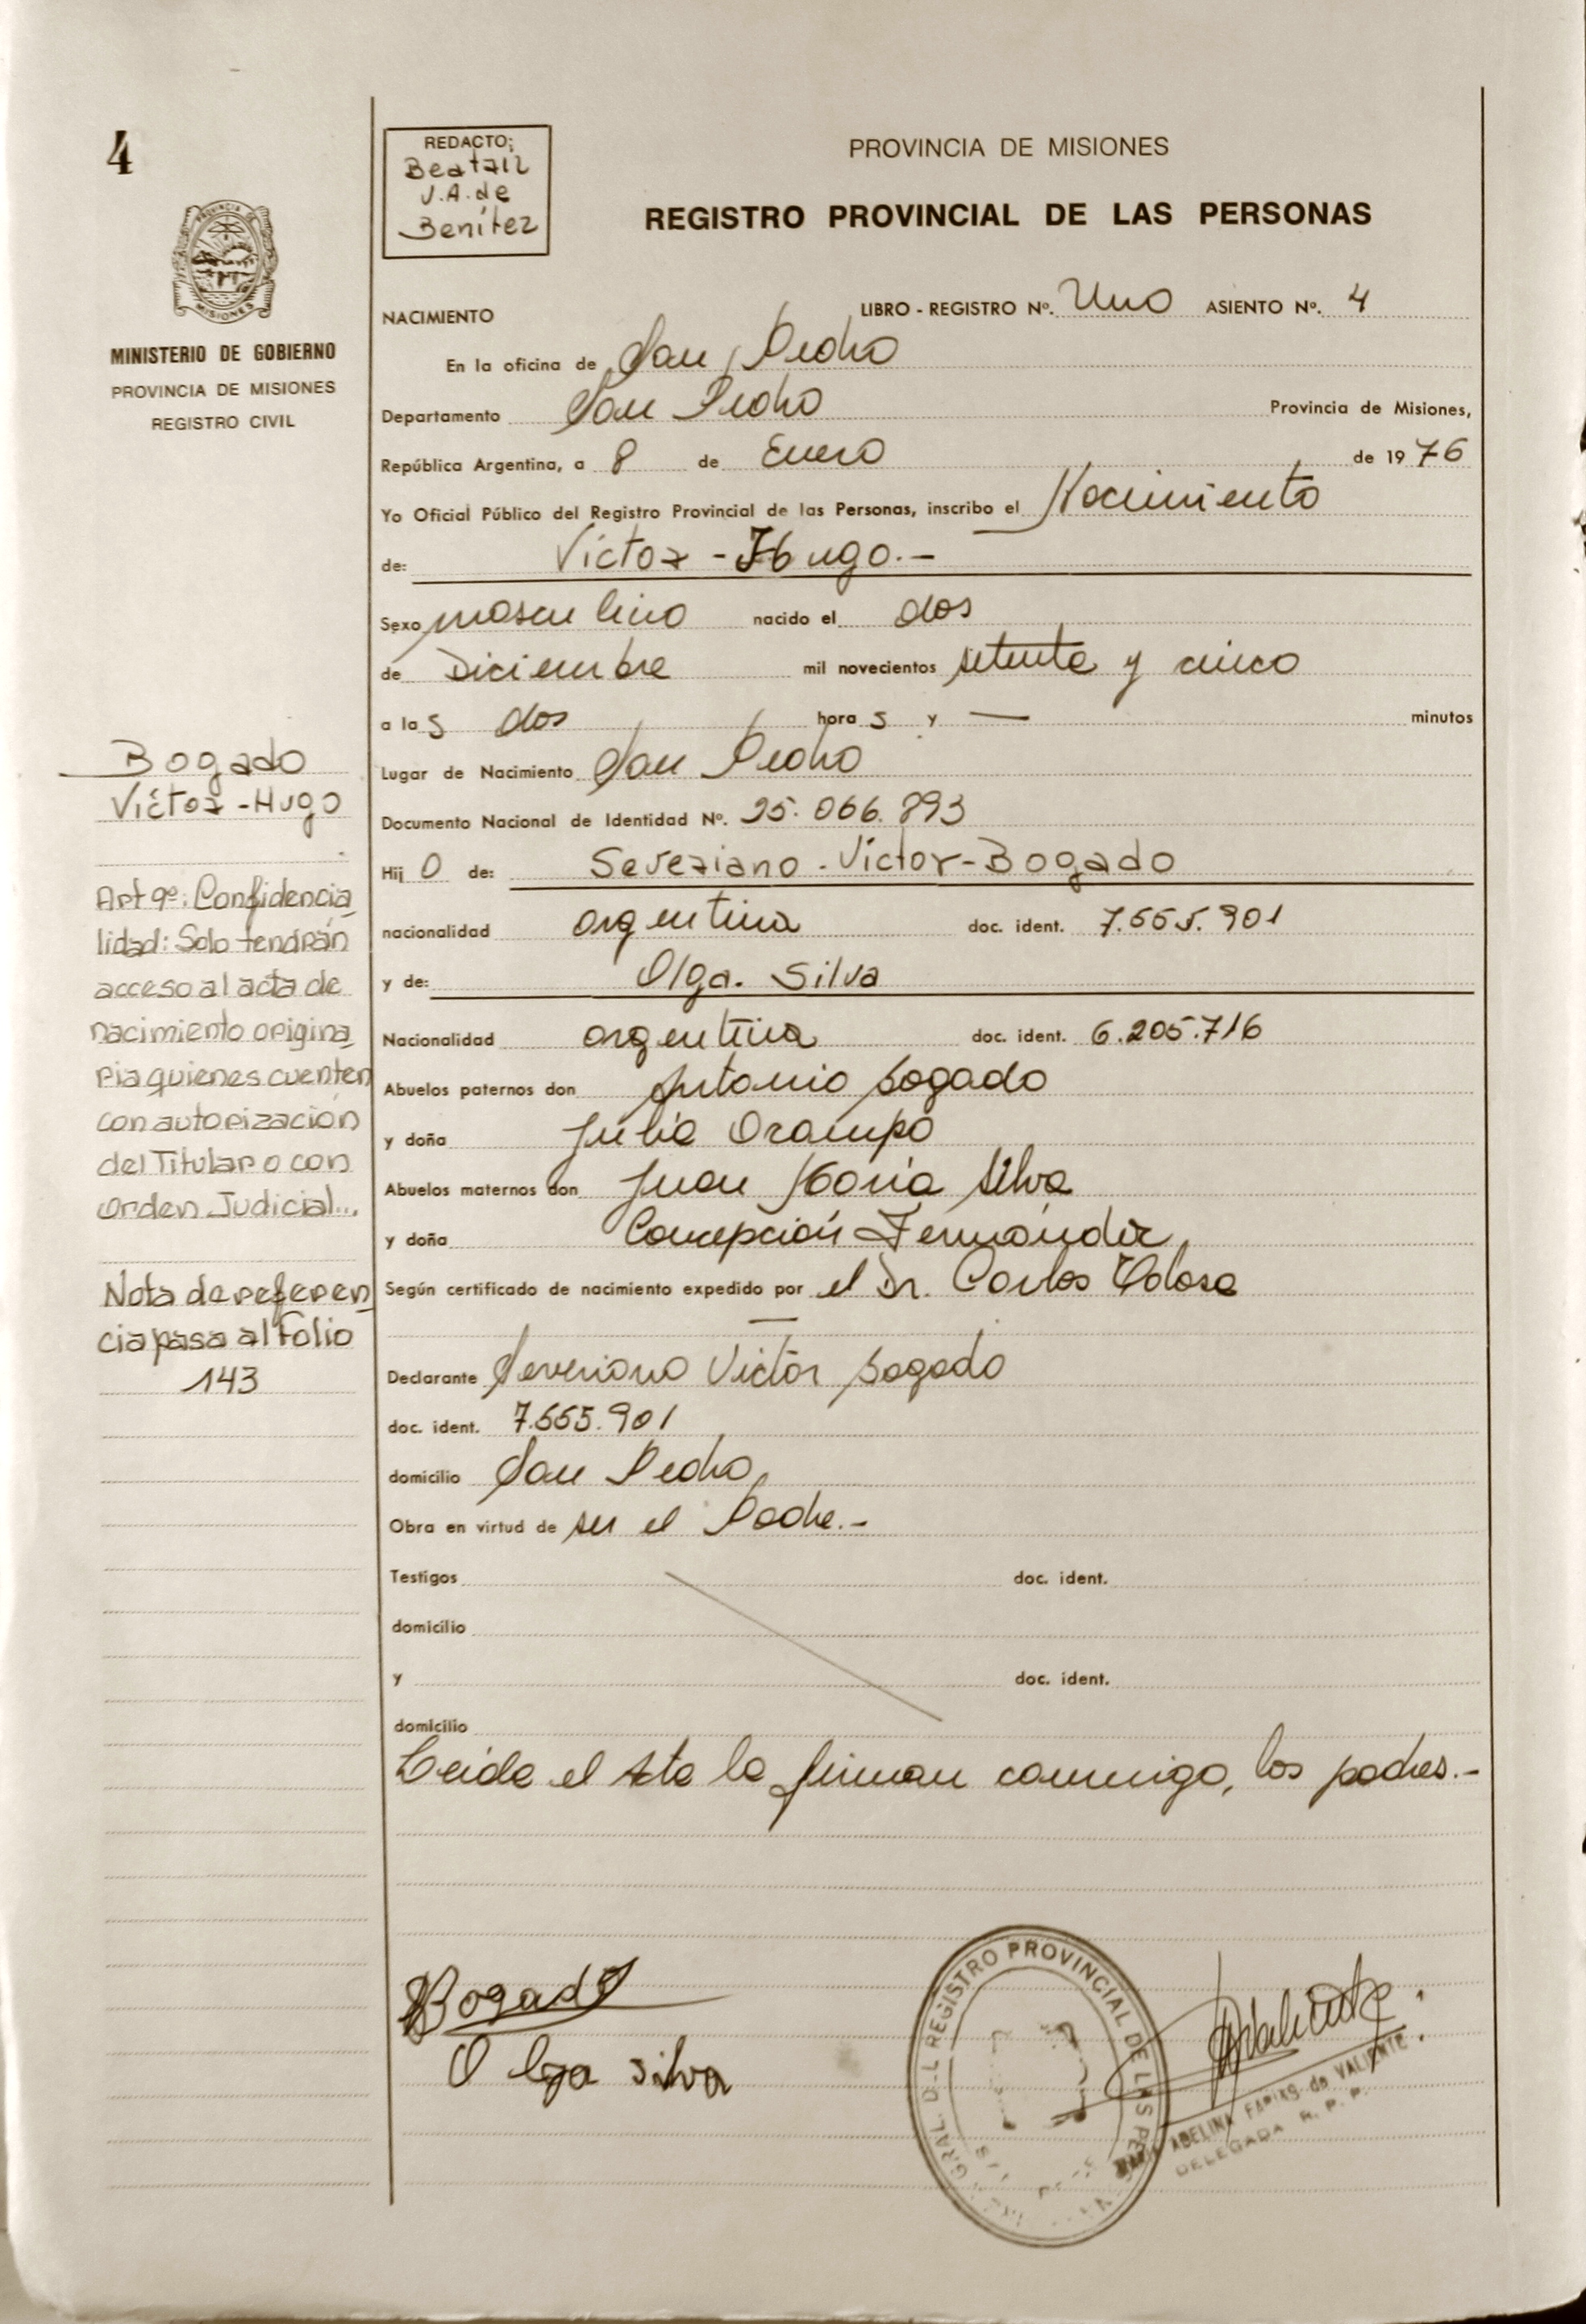 4
PROVINCIA DE MISIONES
MINISTERIO DE GOBIERNO
PROVINCIA DE MISIONES
REGISTRO CIVIL
Bogado
Víctor - Hugo
Art 9º: Confidencia
lidad: Solo tendrán
acceso al acta de
nacimiento origina
ria quienes cuenten
con autorización
del Titular o con
Orden Judicial...
Nota de referen
cia pasa al Folio
143
REDACTO;
Beatriz
V.A. de
Benítez
PROVINCIA DE MISIONES
REGISTRO PROVINCIAL DE LAS PERSONAS
NACIMIENTO LIBRO - REGISTRO Nº. Uno ASIENTO Nº. 4
En la oficina de San Pedro
Departamento San Pedro Provincia de Misiones,
República Argentina, a 8 de Enero de 1976
Yo Oficial Público del Registro Provincial de las Personas, inscribo el Nacimiento
de: Víctor - Hugo.-
Sexo masculino nacido el dos
de Diciembre mil novecientos setenta y cinco
a las dos horas y — minutos
Lugar de Nacimiento San Pedro
Documento Nacional de Identidad Nº. 25.066.893
Hijo de: Severiano - Victor - Bogado
nacionalidad argentina doc. ident. 7.555.901
y de: Olga. Silva
Nacionalidad argentina doc. ident. 6.205.716
Abuelos paternos don Antonio Bogado
y doña Julia Ocampo
Abuelos maternos don Juan María Silva
y doña Concepción Fernández
Según certificado de nacimiento expedido por el Dr. Carlos Tolosa
—
Declarante Severiano Victor Bogado
doc. ident. 7.555.901
domicilio San Pedro
Obra en virtud de ser el Padre.-
Testigos doc. ident.
domicilio
y doc. ident.
domicilio
Leida el Acta la firman conmigo, los padres.-
Bogado
Olga Silva
GRAL. DEL REGISTRO PROVINCIAL DE LAS PE
ADELINA FARIAS de VALIENTE
DELEGADA R. P. P.